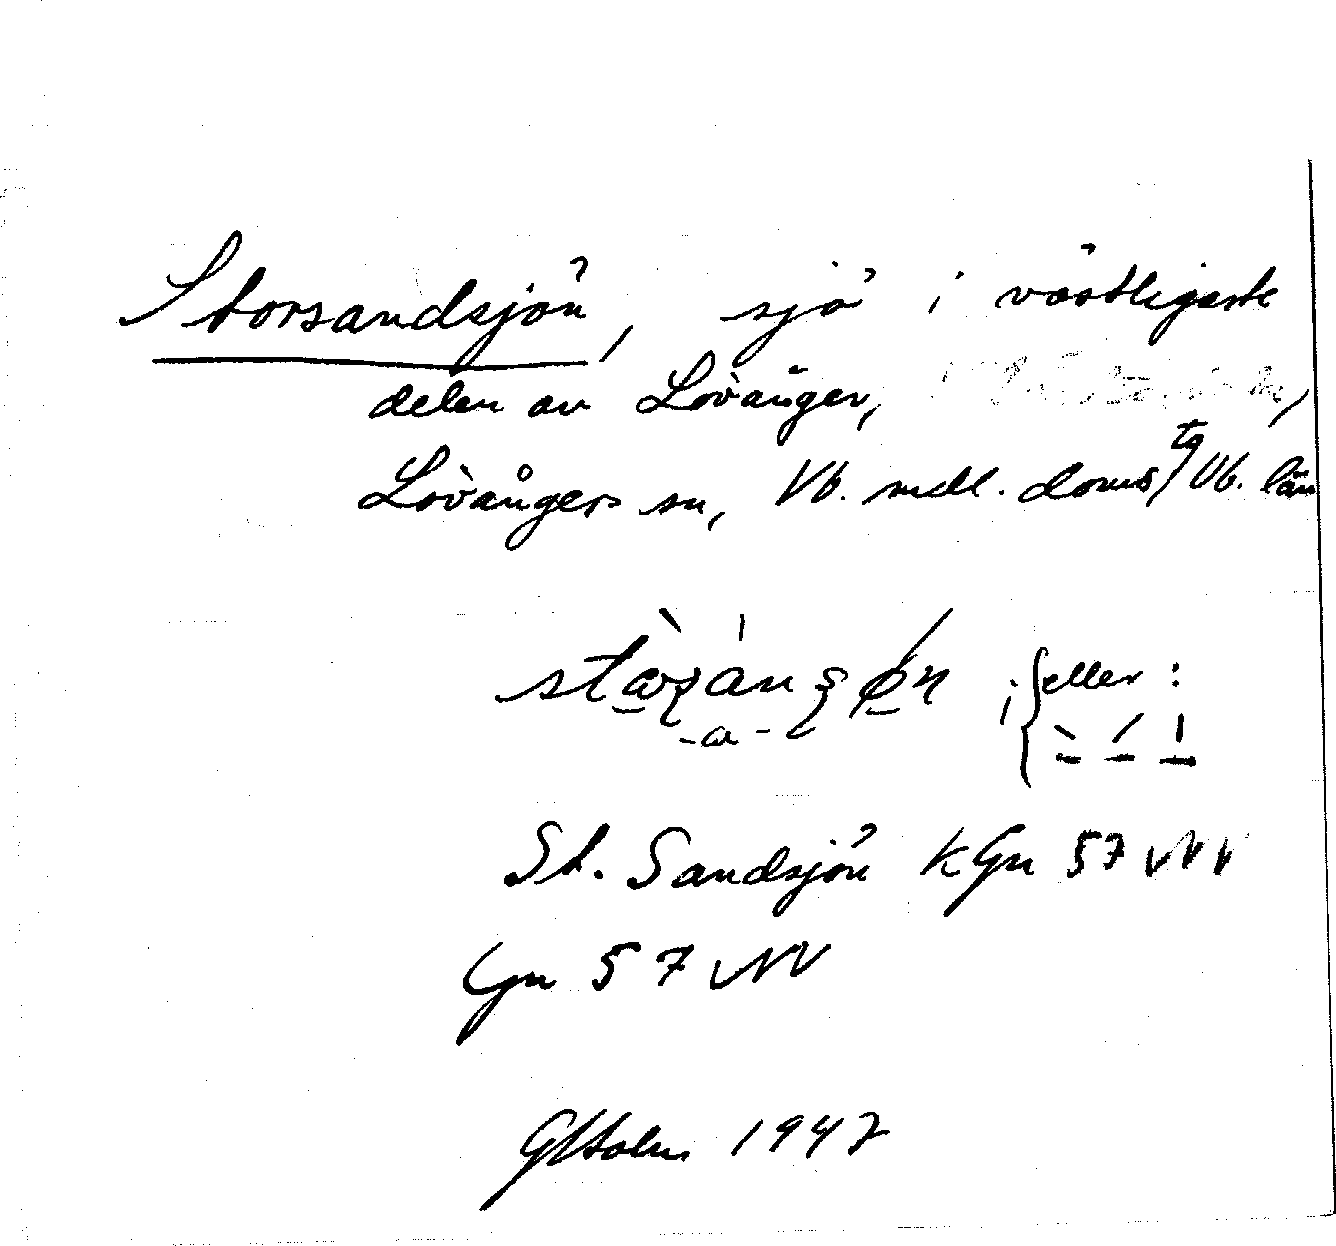 Storsandsjön, sjö i västligaste
delen av Lövånger,
Lövångers sn, Vb. mell. doms tg Vb. län
; eller :
-a-
St. Sandsjön KGn 57 NV
Gn 57 NV
GHolm 1947